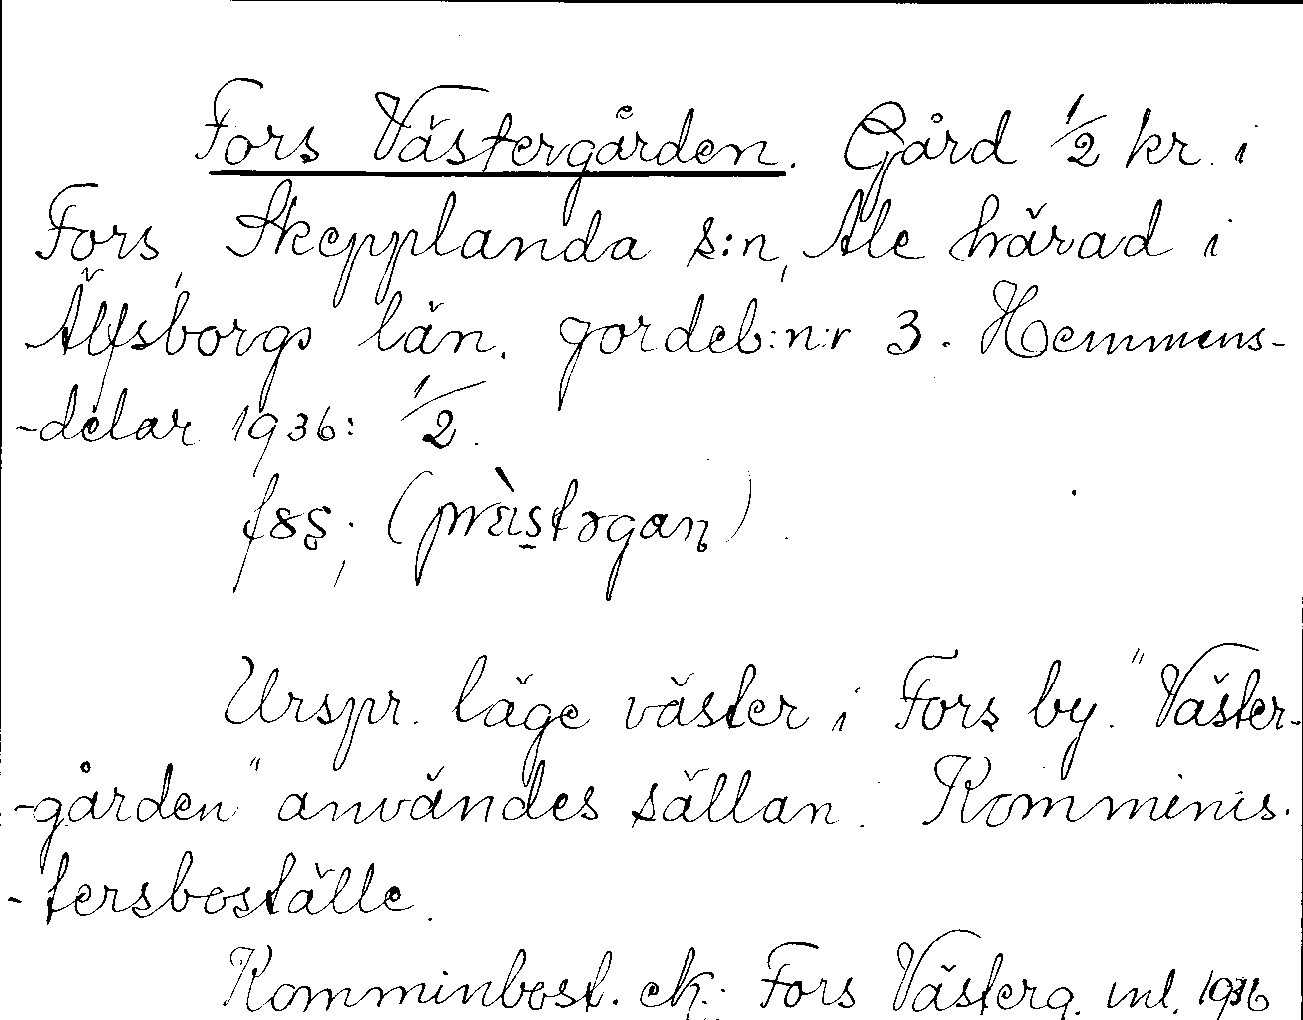 Fors Västergården. Gård 1/2 kr. i
Fors, Skepplanda s:n, Ale härad i
Älfsborgs län. Jordeb:n:r 3. Hemmans-
-delar 1936: 1/2.
Urspr. läge väster i Fors by. "Väster-
-gården" användes sällan. Komminis-
-tersboställe.
Komminbost. ek. Fors Västerg. inl. 1936